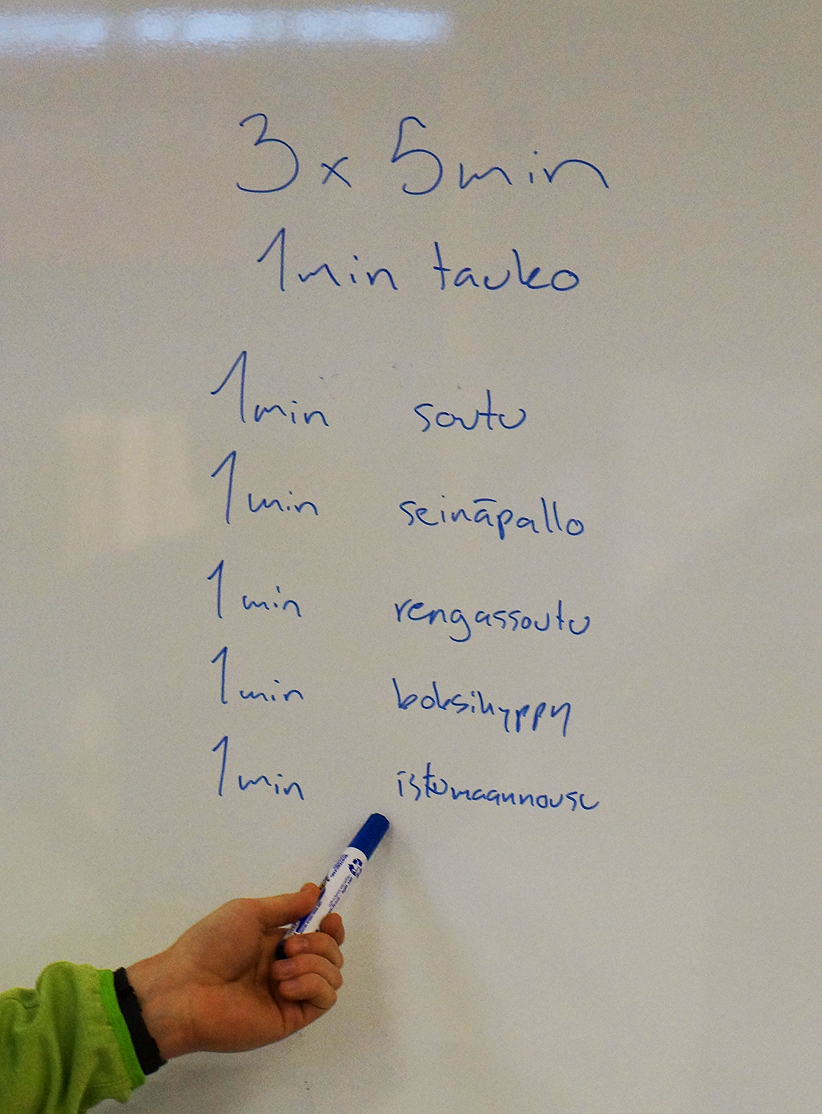 3 x 5 min
1 min tauko
1 min soutu
1 min seinäpallo
1 min rengassoutu
1 min boksihyppy
1 min istumaannousu